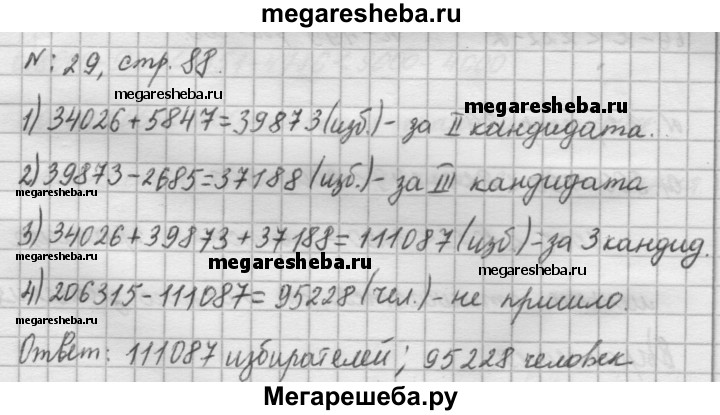 megaresheba.ru
№: 29, стр. 88.
megaresheba.ru
1) 34026+5847=39873(изб.)- за II кандидата.
megaresheba.ru
2) 39873-2685=37188 (изб.)- за III кандидата
megaresheba.ru
3) 34026+39873+37188=111087(изб.)-за 3 кандид.
megaresheba.ru
megaresheba.ru
4) 206315-111087=95228(чел.)- не пришло.
megaresheba.ru
Ответ: 111087 избирателей; 95228 человек
megaresheba.ru
Мегарешеба.ру